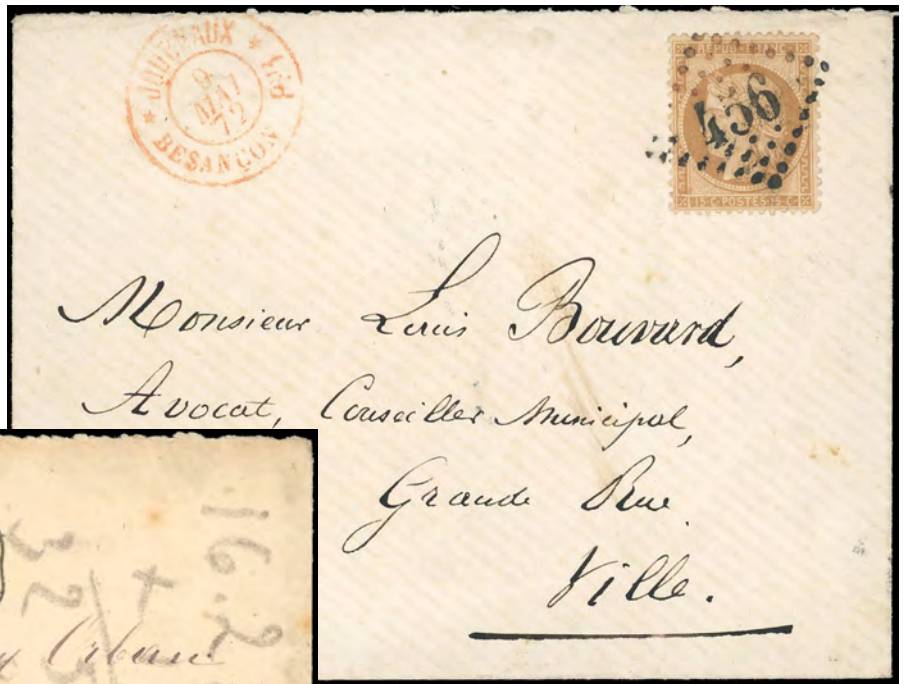 JOURNAUX
P.P.4
9
MAI
72
BESANÇON
REPUB·FRANC
456
15 C·POSTES·15 C
Monsieur Louis Bouvard,
Avocat, Conseiller Municipal,
Grande Rue
Ville.
16.2
+
32
Urbain